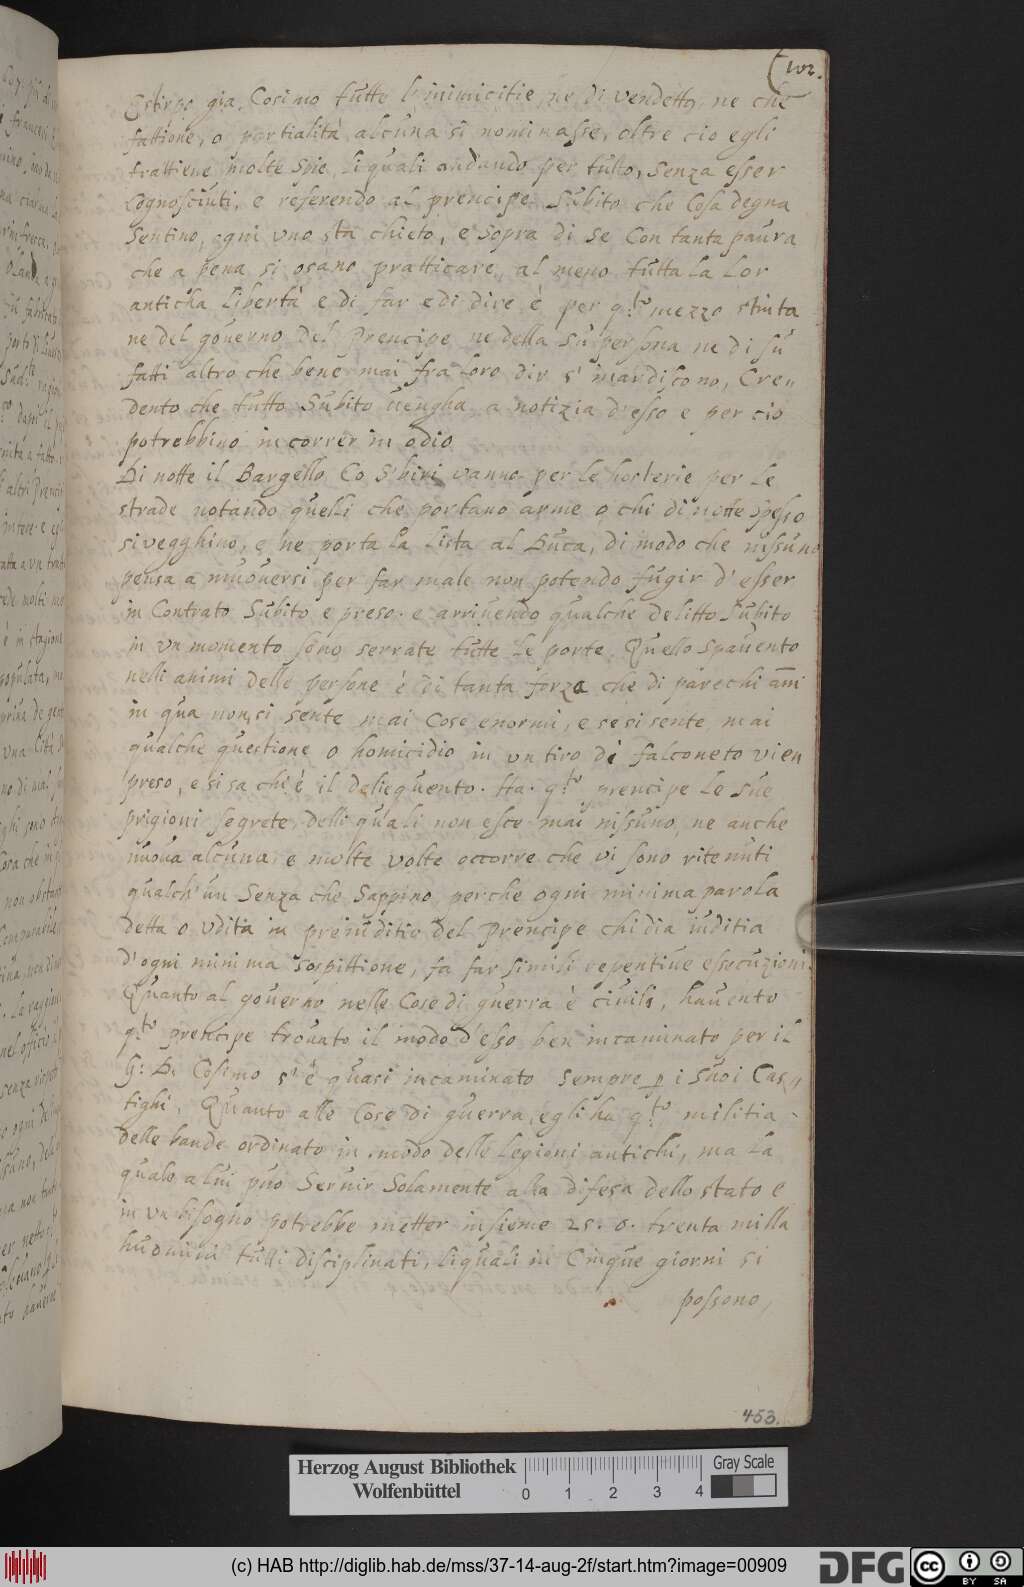 102.
Estirpo gia Cosimo tutte l'inimicitie, ne di vendetta, ne che
fattione, o partialità alcuna si nominasse, oltre cio egli
trattiene molte spie, li quali andando per tutto, senza esser
Cognosciuti, e referendo al prencipe subito che Cosa degna
Sentino, ogni uno sta chieto, e sopra di se Con tanta paura
che a pena si osano pratticare, al meno tutta la lor
anticha libertà e di far e di dire è per q.to mezzo stinta
ne del gouerno del Prencipe ne della su persona ne di su
fatti altro che bene mai fra loro dir s'inardiscono, Cre„
dento che tutto subito uengha a notizia d'esso e per cio
potrebbino incorrer in odio
Di notte il Bargello Co Sbiri vanno per le hosterie per le
strade notando quelli che portano arme o chi di notte spesso
si vegghino, e ne porta la lista al Duca, di modo che nissuno
pensa a muouersi per far male non potendo fugir d'esser
in Contrato Subito e preso. e arriuendo qualche delitto Subito
in un momento sono serrate tutte le porte. Quello spauento
nelli animi delle persone è di tanta forza che di parechi anni
in qua non si sente mai cose enormi, e se si sente mai
qualche questione o homicidio in un tiro di falconeto vien
preso, e si sa chi è il deliequento. Ha q.to prencipe le sue
prigioni segrete, delli quali non esce mai nissuno, ne anche
nuoua alcuna e molte volte occorre che vi sono ritenuti
qualch'un Senza che Sappino, perche ogni minima parola
detta o udita in preiuditio del Prencipe chi dia inditia
d'ogni minima sospittione, fa far simili repentiue essecuzioni.
Quanto al gouerno nelle Cose di guerra è ciuili, hauento
q.to prencipe trouato il modo d'esso ben incaminato per il
G: D: Cosimo s'è quasi incaminato sempre p i suoi Cas„
tighi. Quanto alle Cose di guerra, egli ha q.to militia
delle bande ordinato in modo delle Legioni antichi, ma la
quale a lui può Seruir Solamente alla difesa dello stato e
in un bisogno potrebbe metter insieme 25. o. trenta milla
huomini tutti disciplinati, li quali in Cinque giorni si
possono,
453.
Herzog August Bibliothek
Wolfenbüttel
0 1 2 3 4
Gray Scale
(c) HAB http://diglib.hab.de/mss/37-14-aug-2f/start.htm?image=00909
DFG
cc BY SA